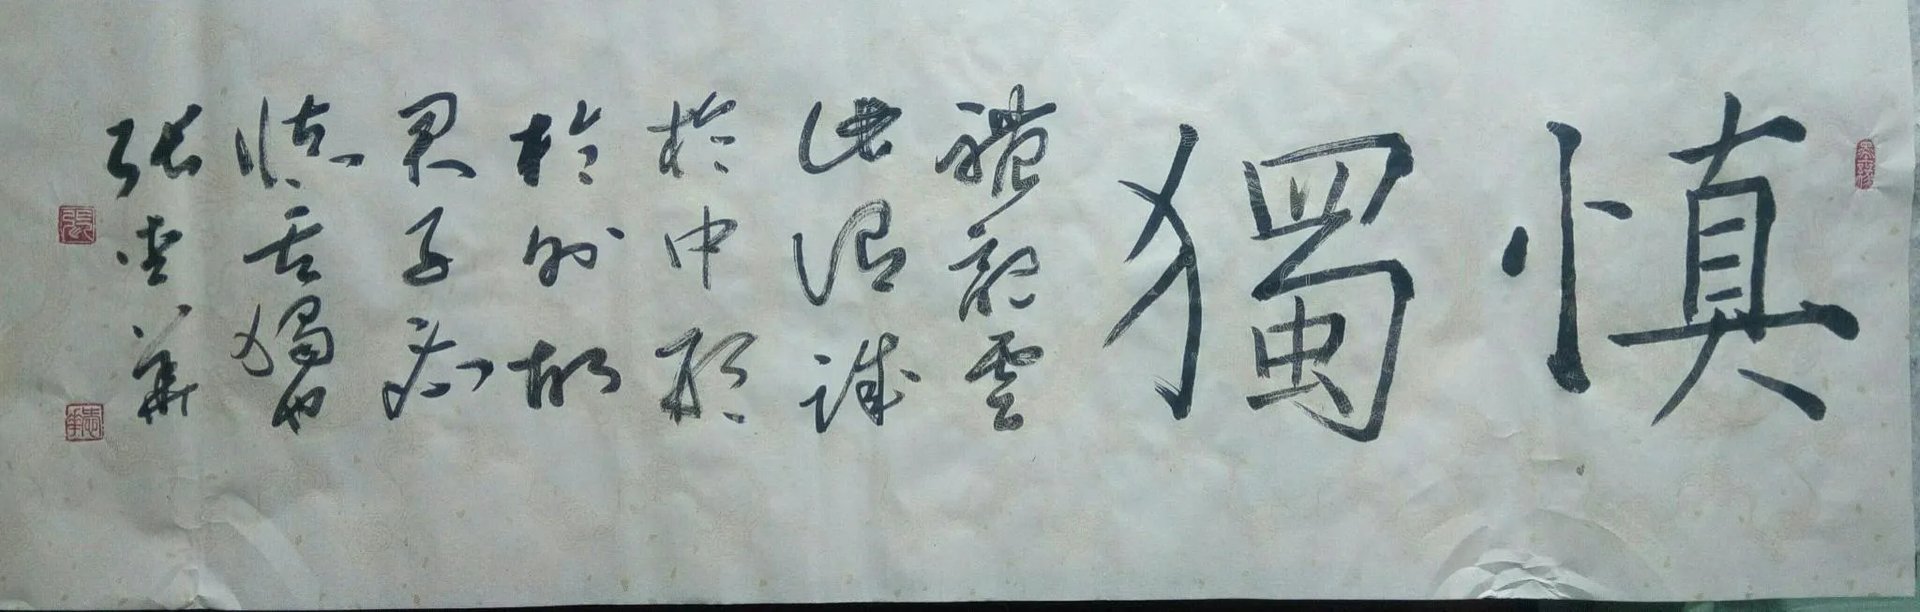 慎獨
禮記雲
此謂誠
於中形
於外故
君子必
慎其獨也
張 華
張